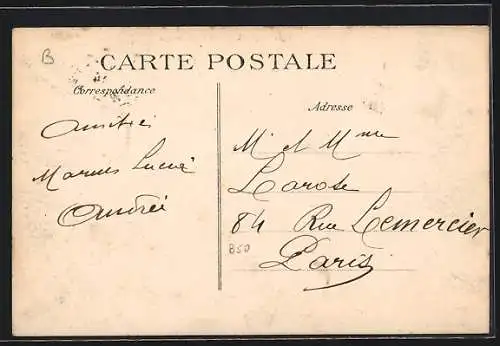 B
CARTE POSTALE
Correspondance
Amitié
Marius Lucie
Andrée
Adresse
M et Mme
Larose
84 Rue Lemercier
Paris
B50